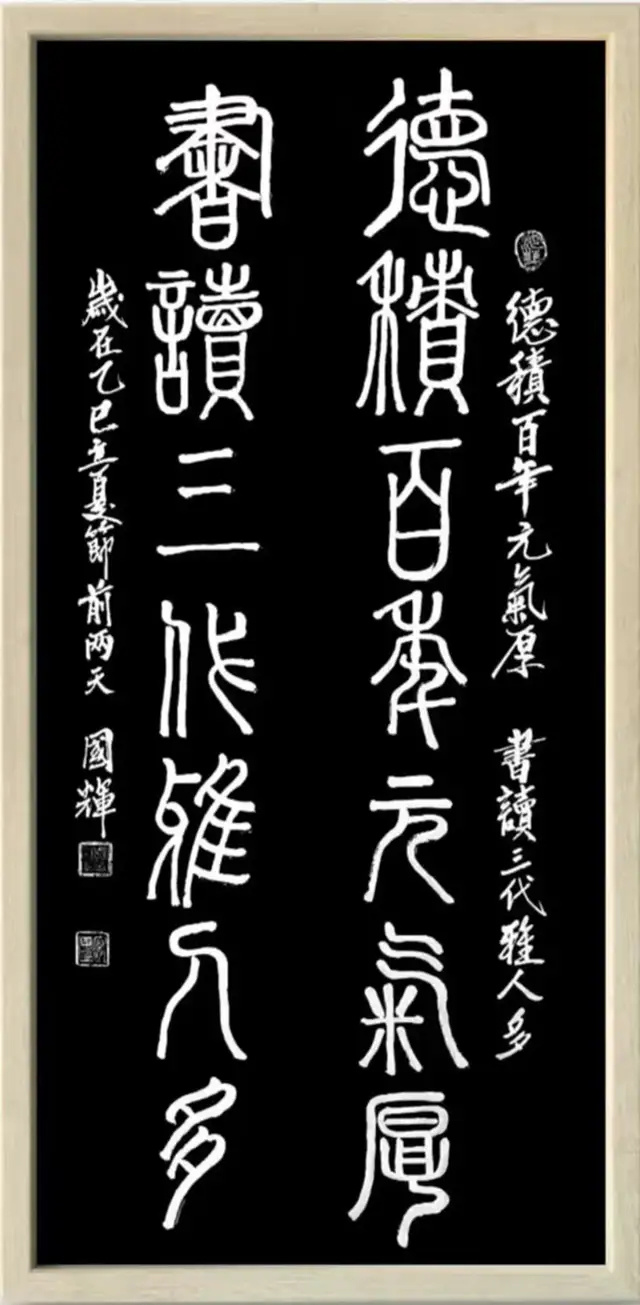 德積百年元氣厚 書讀三代雅人多
德積百年元氣厚
書讀三代雅人多
歲在乙巳立夏節前兩天 國輝